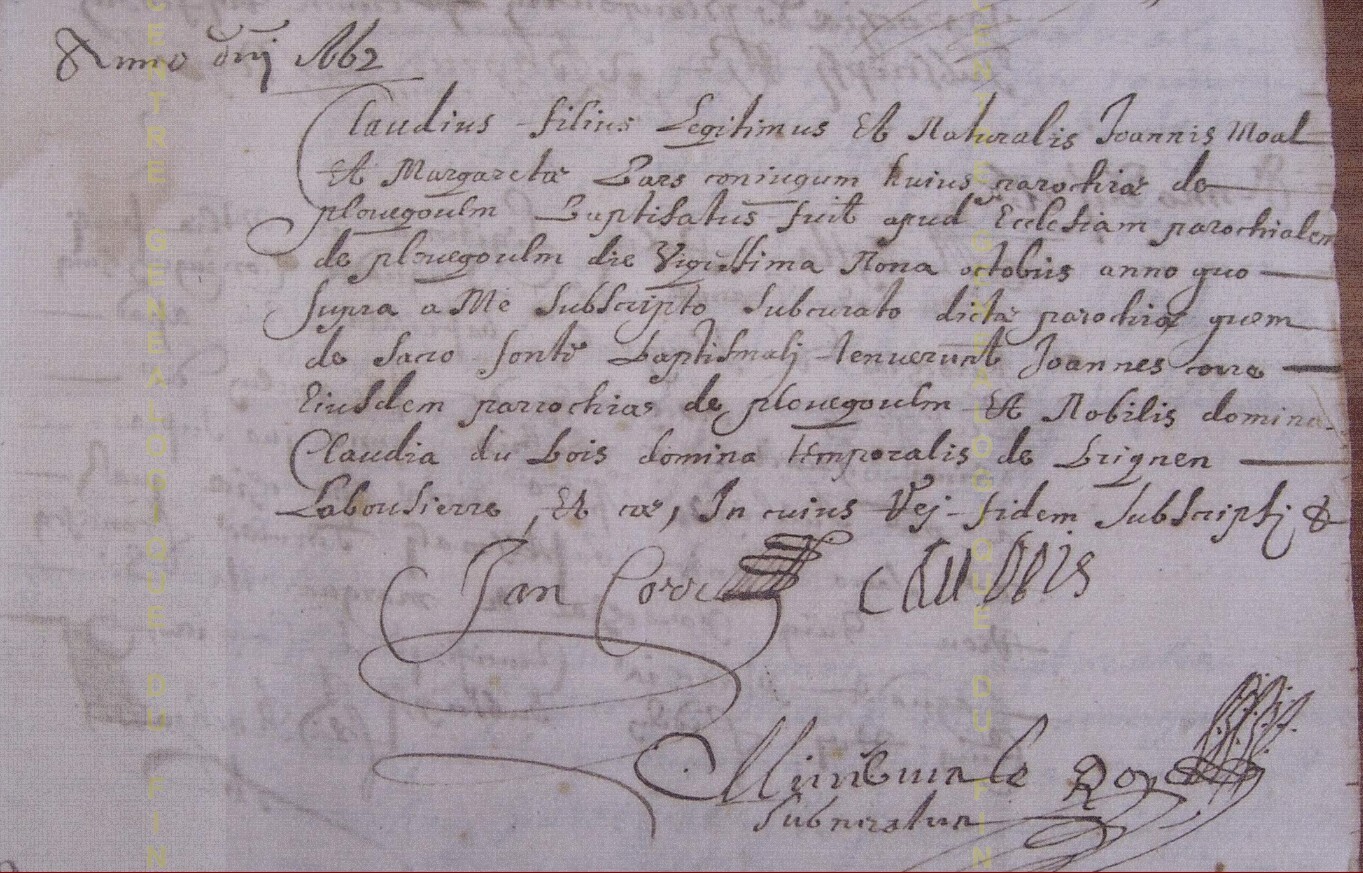 Anno dnj 1662
Claudius filius Legitimus Et Naturalis Joannis Moal
Et Margaretæ Bars coniugum huius parochiæ de
plouegoulm Baptisatus fuit apud Ecclesiam parochialem
de plouegoulm die Vigissima Nona octobris anno quo
supra a Me Subscripto Subcurato dictæ parochiæ quem
de Sacro fonte Baptismalj tenuerunt Joannes corre
Eiusdem parrochiæ de plouegoulm Et Nobilis domina
Claudia du Bois domina temporalis de Brignen
Labousierre, Et cæ, In cuius Rej fidem Subscripsj &
Jan Corre
CENTRE GENEALOGIQUE DU FIN
CENTRE GENEALOGIQUE DU FIN